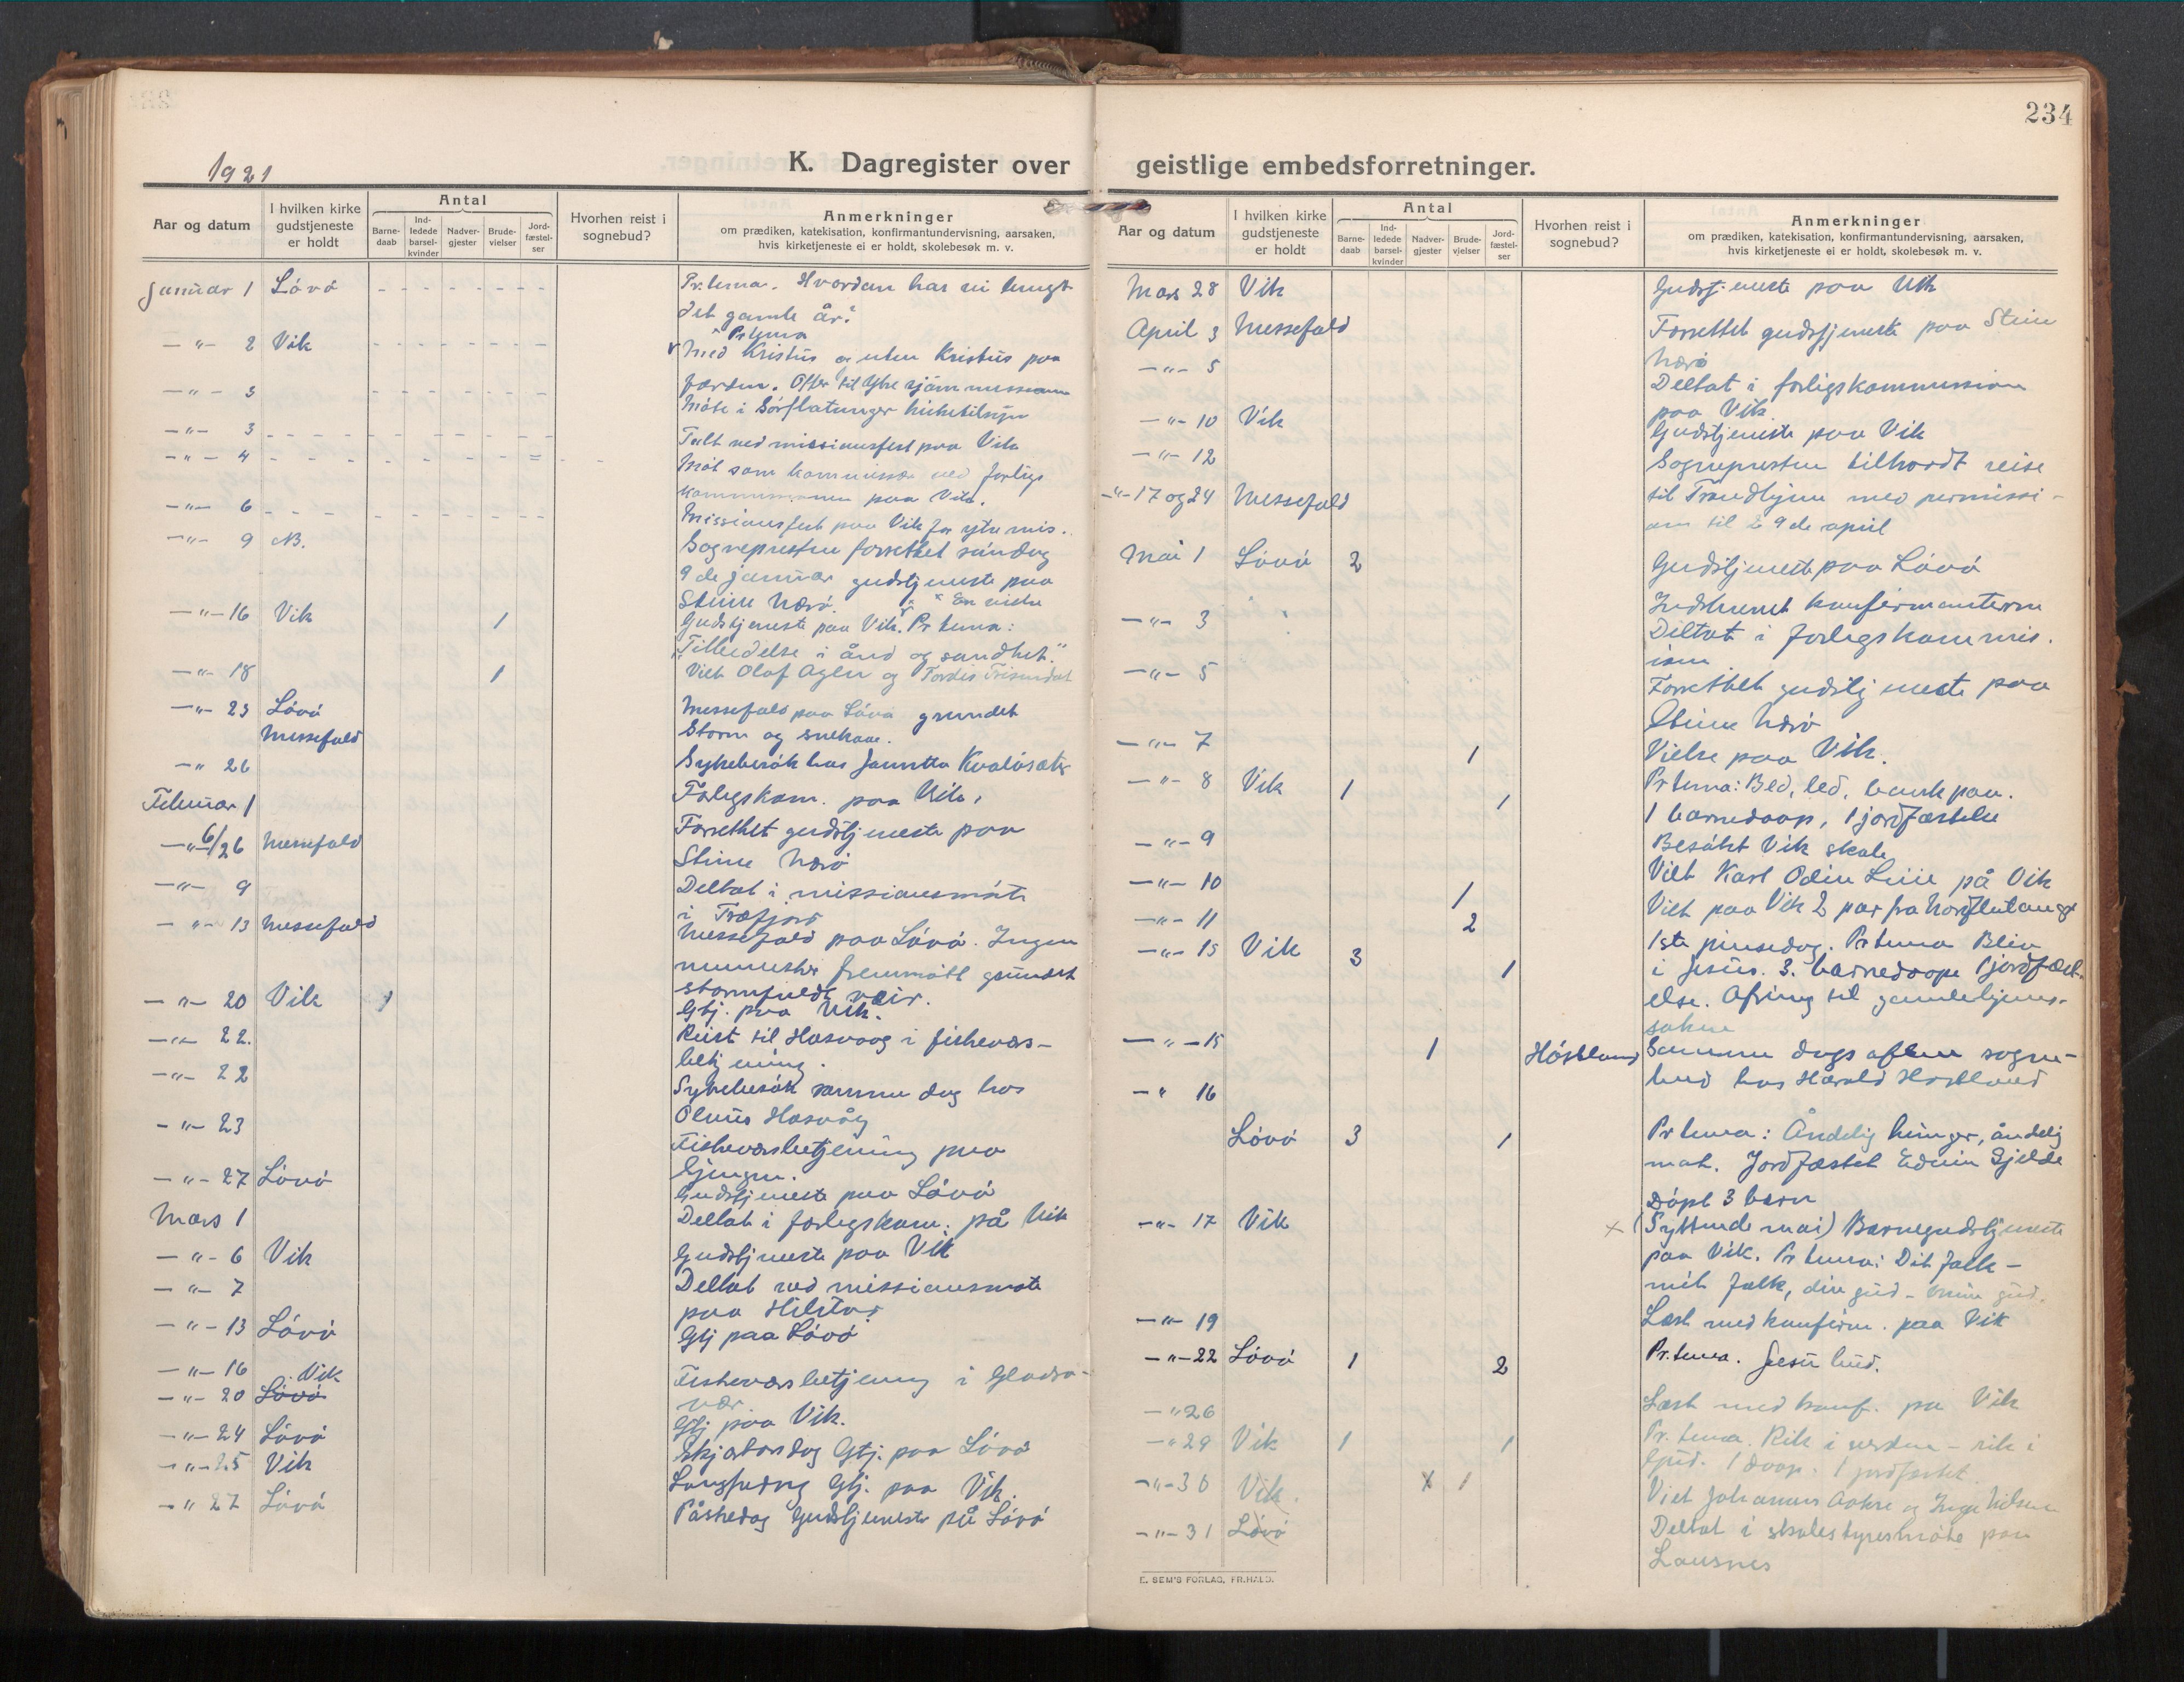 1921
K. Dagregister over
Aar og datum
I hvilken kirke gudstjeneste er holdt
Antal
Barne-daab
Ind-ledede barsel-kvinder
Nadver-gjester
Brude-vielser
Jord-fæstel-ser
Hvorhen reist i sognebud?
Anmerkninger
om prædiken, katekisation, konfirmantundervisning, aarsaken,
hvis kirketjeneste ei er holdt, skolebesøk m. v.
Januar 1 Lövö Pr. tema. Hvordan har vi brugt
det gamle år?
Pr tema
— " — 2 Vik Med Kristus og uten Kristus paa
færden. Offer til ytre sjömannsmission
— " — 3 Möte i Sörflatanger kirketilsyn
— " — 3 Talt ved missionsfest paa Vik
— " — 4 Möt som kommissær ved forligs
kommissionen paa Vik.
— " — 6 Missionsfest paa Vik for ytre mis.
— " — 9 NB. Sognepresten forrettet söndag
9 de januar gudstjeneste paa
Steine Nærö.
— " — 16 Vik 1 Gudstjeneste paa Vik. Pr tema:
"Tilbedelse i ånd og sandhet."
— " — 18 1 Viet Olaf Aglen og Tordis
— " — 23 Lövö Messefald paa Lövö grundet
Messefald Storm og snekave.
— " 26 Sykebesök hos Jannetta Kvalösæter
Februar 1 Forligskom. paa Vik.
— " — 6/26 Messefald Forrettet gudstjeneste paa
Steine Nærö
— " — 9 Deltat i missionsmöte
i Træfjord
— " — 13 Messefald Messefald paa Lövö. Ingen
mennesker fremmött grundet
stormfuldt veir.
— " — 20 Vik 1 Gtj. paa Vik.
— " — 22. Reist til Hasvaag i fiskeværs-
betjening.
— " — 22 Sykebesök samme dag hos
Olenus Hasvåg
— " — 23 Fiskeværsbetjening paa
Gjingen.
— " — 27 Lövö Gudstjeneste paa Lövö
Mars 1 Deltat i forligskom. på Vik
— " — 6 Vik Gudstjeneste paa Vik
— " — 7 Deltat ved missionsmöte
paa
— " — 13 Lövö Gtj paa Lövö
— " — 16 Fiskeværsbetjening i Gladsö-
vær.
— " — 20 Lövö Vik Gtj. paa Vik.
— " — 24 Lövö Skjærtorsdag Gtj. paa Lövö
— " — 25 Vik Langfredag Gtj. paa Vik.
— " 27 Lövö Påskedag Gudstjeneste på Lövö
234
geistlige embedsforretninger.
Aar og datum
I hvilken kirke gudstjeneste er holdt
Antal
Barne-daab
Ind-ledede barsel-kvinder
Nadver-gjester
Brude-vjelser
Jord-fæstel-ser
Hvorhen reist i sognebud?
Anmerkninger
om prædiken, katekisation, konfirmantundervisning, aarsaken,
hvis kirketjeneste ei er holdt, skolebesøk m. v.
Mars 28 Vik Gudstjeneste paa Vik
April 3 Messefald Forrettet gudstjeneste paa Steine
Nærö
— " — 5 Deltat i forligskommission
paa Vik.
— " — 10 Vik Gudstjeneste paa Vik
— " — 12 Sognepresten tiltraadt reise
— " — 17 og 24 Messefald til Trondhjem med permissi-
on til 29 de april
Mai 1 Lövö 2 Gudstjeneste paa Lövö
Indskrevet konfirmanterne
— " — 3 Deltat i forligskommis.
ion
— " — 5 Forrettet gudstjeneste paa
Steine Nærö
— " — 7 1 Vielse paa Vik.
— " — 8 Vik 1 1 Pr tema: Bed, led, bank paa.
1 barnedaap, 1 jordfæstelse
— " — 9 Besökt Vik skole
— " — 10 1 Viet Karl Odin på Vik
— " — 11 2 Viet paa Vik 2 par fra Nordflatanger
— " — 15 Vik 3 1 1ste pinsedag. Pr tema Bliv
i Jesus. 3. barnedaape 1 jordfæst-
else. Ofring til gamlehjems-
saken
— " — 15 1 Höstland Samme dags aften sogne-
bud hos Harald Höstland
— " 16
Lövö 3 1 Pr tema: Åndelig hunger, åndelig
mat. Jordfæstet Edvin Gjelde
Döpt 3 barn
— " — 17 Vik × (Syttende mai) Barnegudstjeneste
paa Vik. Pr tema: Dit folk —
mit folk, din gud — min gud.
— " — 19 Læst med konfirm. paa Vik
— " — 22 Lövö 1 2 Pr. tema. Jesu bud.
— " 26 Læst med konf. paa Vik
— " 29 Vik 1 1 Pr. tema. Rik i verden — rik i
Gud. 1 daap. 1 jordfæstet.
— " — 30 Vik. x 1 Viet Johannes Aakre og Inga Nilsen
— " — 31 Lövö Deltat i skolestyresmöte paa
Lausnes
E. SEM'S FORLAG, FR.HALD.